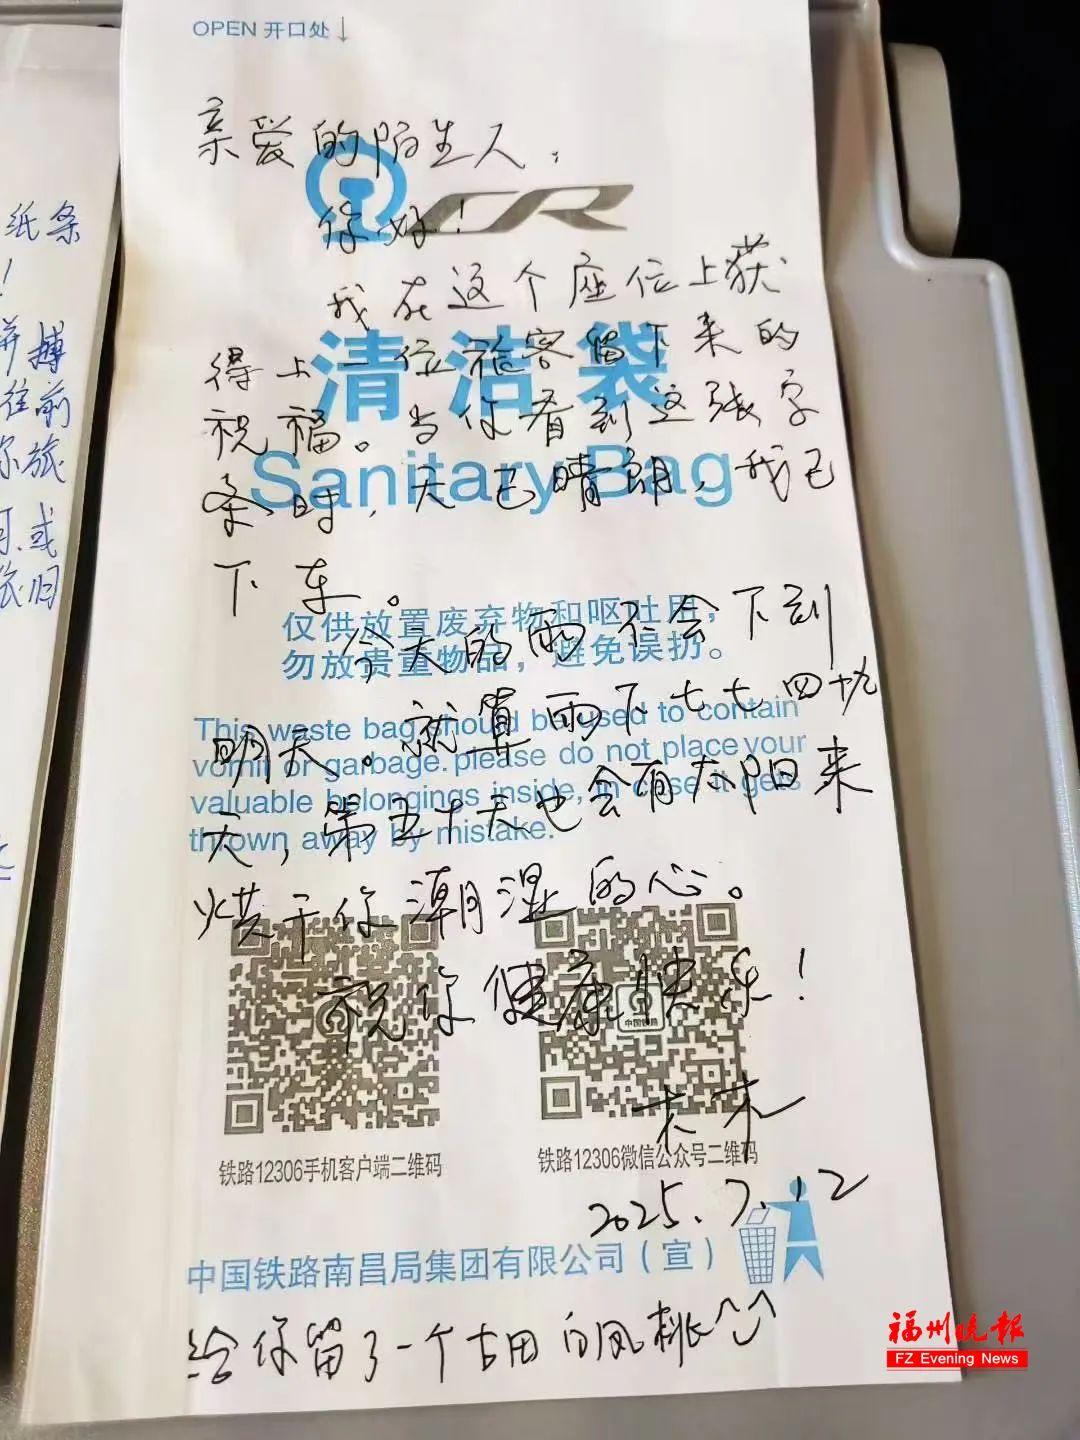 OPEN 开口处↓
亲爱的陌生人：
你好！
CR
我在这个座位上获
得上一位旅客留下来的
祝福。当你看到这张字
条时，天已晴朗，我已
下车。
清洁袋
Sanitary Bag
今天的雨不会下到
明天。就算雨下七七四十九
天，第五十天也会有太阳来
烘干你潮湿的心。
祝你健康快乐！
未木
2025.7.12
仅供放置废弃物和呕吐用，
勿放贵重物品，避免误扔。
This waste bag should be used to contain
vomit or garbage.please do not place your
valuable belongings inside, in case it gets
thrown away by mistake.
中国铁路
铁路12306手机客户端二维码
铁路12306微信公众号二维码
中国铁路南昌局集团有限公司（宣）
给你留了一个古田白凤桃^◡^
纸条
！
拼搏
往前
你旅
或
依旧
福州晚报
FZ Evening News